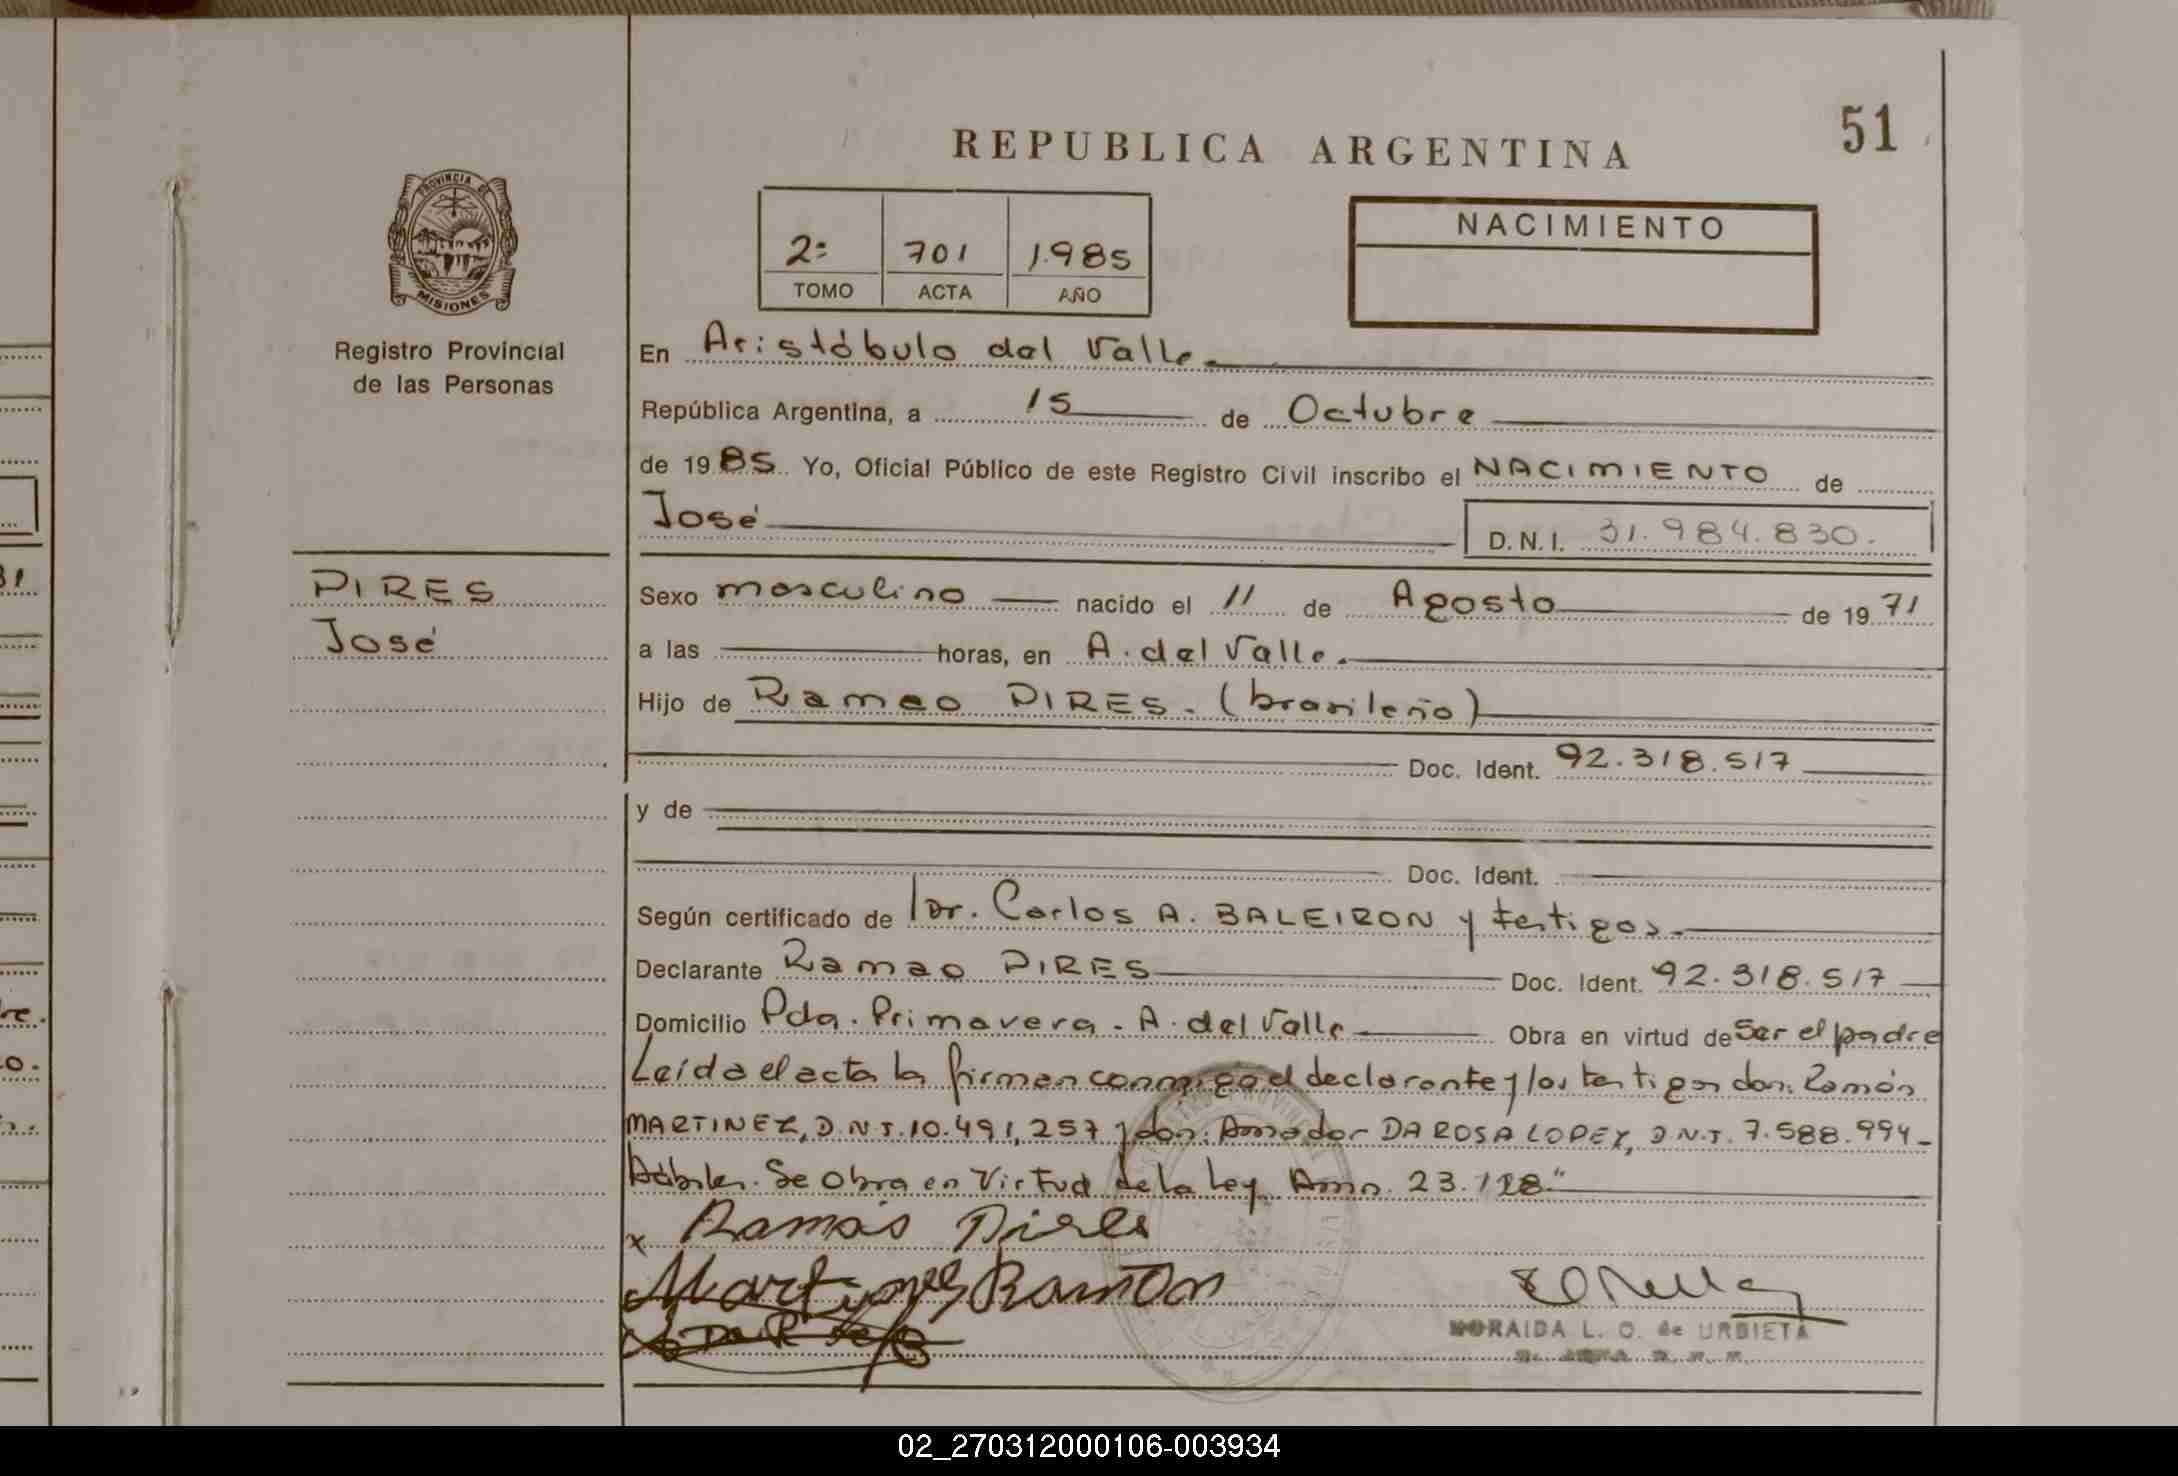 51
REPUBLICA ARGENTINA
PROVINCIA DE
MISIONES
Registro Provincial
de las Personas
2º 701 1.985
TOMO ACTA AÑO
NACIMIENTO
En Aristóbulo del Valle
República Argentina, a 15 de Octubre
de 19 85 Yo, Oficial Público de este Registro Civil inscribo el NACIMIENTO de
José
D.N.I. 31.984.830.
PIRES
José
Sexo masculino nacido el 11 de Agosto de 19 71
a las horas, en A. del Valle.
Hijo de Ramao PIRES. (brasileño)
Doc. Ident. 92.318.517
y de
Doc. Ident.
Según certificado de Dr. Carlos A. BALEIRON y testigos.
Declarante Ramao PIRES Doc. Ident. 92.318.517
Domicilio Pda. Primavera. A. del Valle Obra en virtud de Ser el padre
Leída el acta la firman conmigo el declarante y los testigos don: Ramón
MARTINEZ, D.N.I. 10.491,257 y don: Amador DA ROSA LOPEZ, D.N.I. 7.588.994-
Hábiles. Se Obra en Virtud de la Ley Amn. 23.128"
x Ramão Pires
Martines Ramon
MORAIDA L. O. de URBIETA
02_270312000106-003934